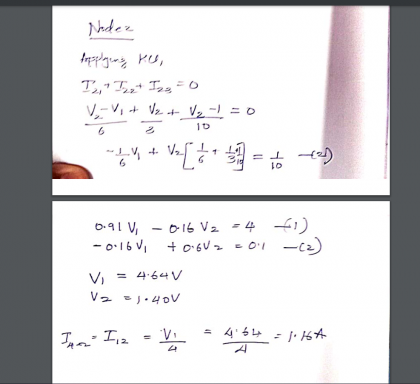 Node2
Applying KCL,
I₂₁ + I₂₂ + I₂₃ = 0
(V₂ - V₁)/6 + V₂/3 + (V₂ - 1)/10 = 0
-1/6 V₁ + V₂ [1/6 + ] = 1/10 —(2)
0.91 V₁ - 0.16 V₂ = 4 —(1)
-0.16 V₁ + 0.6 V₂ = 0.1 —(2)
V₁ = 4.64V
V₂ = 1.40V
= I₁₂ = V₁/4 = 4.64/4 = 1.16A